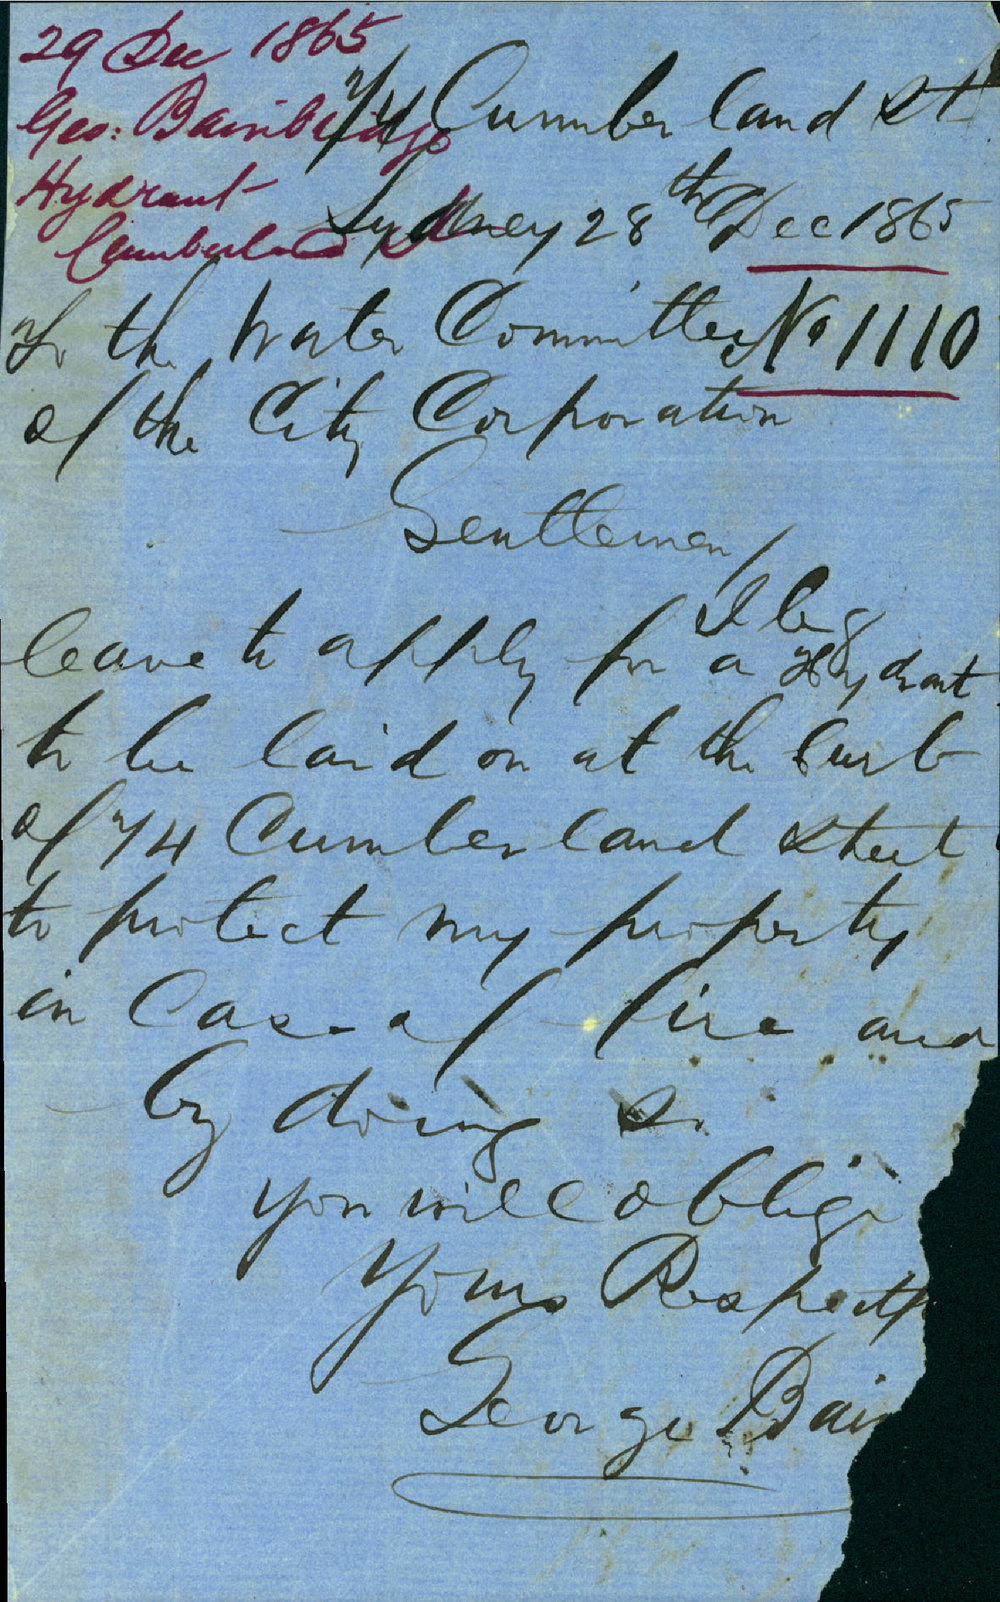 29 Dec 1865
Geo: Bainbridge
Hydrant
Cumberland St
74 Cumberland St
Sydney 28th Dec 1865
No 1110
To the Water Committee
of the City Corporation
Gentlemen
I beg
leave to apply for a Hydrant
to be laid on at the Curb
of 74 Cumberland Street
to protect my property
in Case of fire and
by doing so
you will oblige
Yours Respectf
George Bain